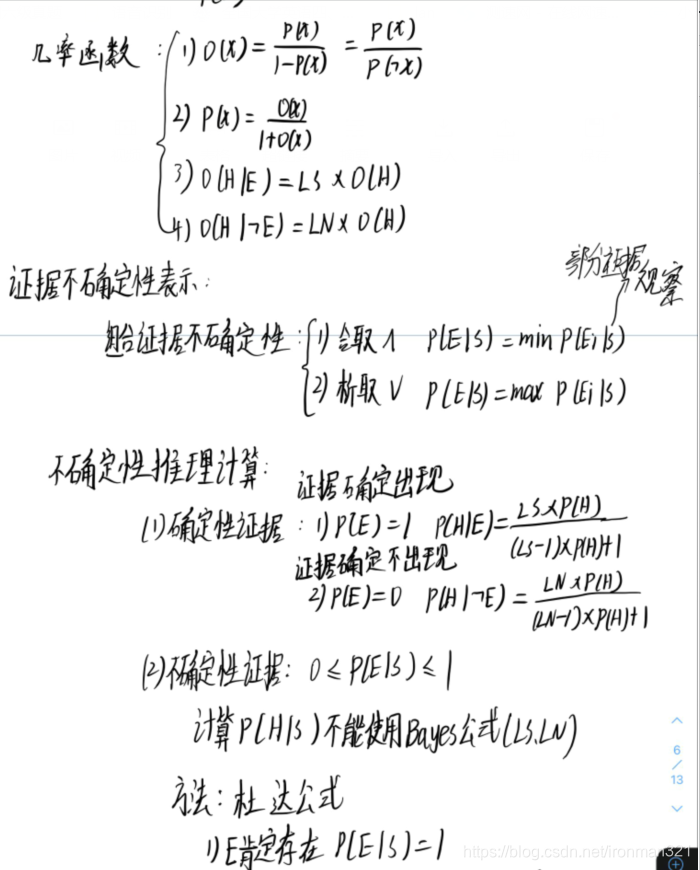 几率函数：1) O(X) = P(X)/(1-P(X)) = P(X)/P(¬X)
2) P(X) = O(X)/(1+O(X))
3) O(H|E) = LS × O(H)
4) O(H|¬E) = LN × O(H)
部分证据
观察
证据不确定性表示：
组合证据不确定性：1) 合取 ∧ P(E|S) = min P(Ei|S)
2) 析取 ∨ P(E|S) = max P(Ei|S)
不确定性推理计算：
证据确定出现
(1) 确定性证据：1) P(E)=1 P(H|E) = LS×P(H)/((LS-1)×P(H)+1)
证据确定不出现
2) P(E)=0 P(H|¬E) = LN×P(H)/((LN-1)×P(H)+1)
(2) 不确定性证据：0 ≤ P(E|S) ≤ 1
计算P(H|S)不能使用Bayes公式(LS、LN)
方法：杜达公式
1) E肯定存在 P(E|S)=1
6
/
13
https://blog.csdn.net/ironman321